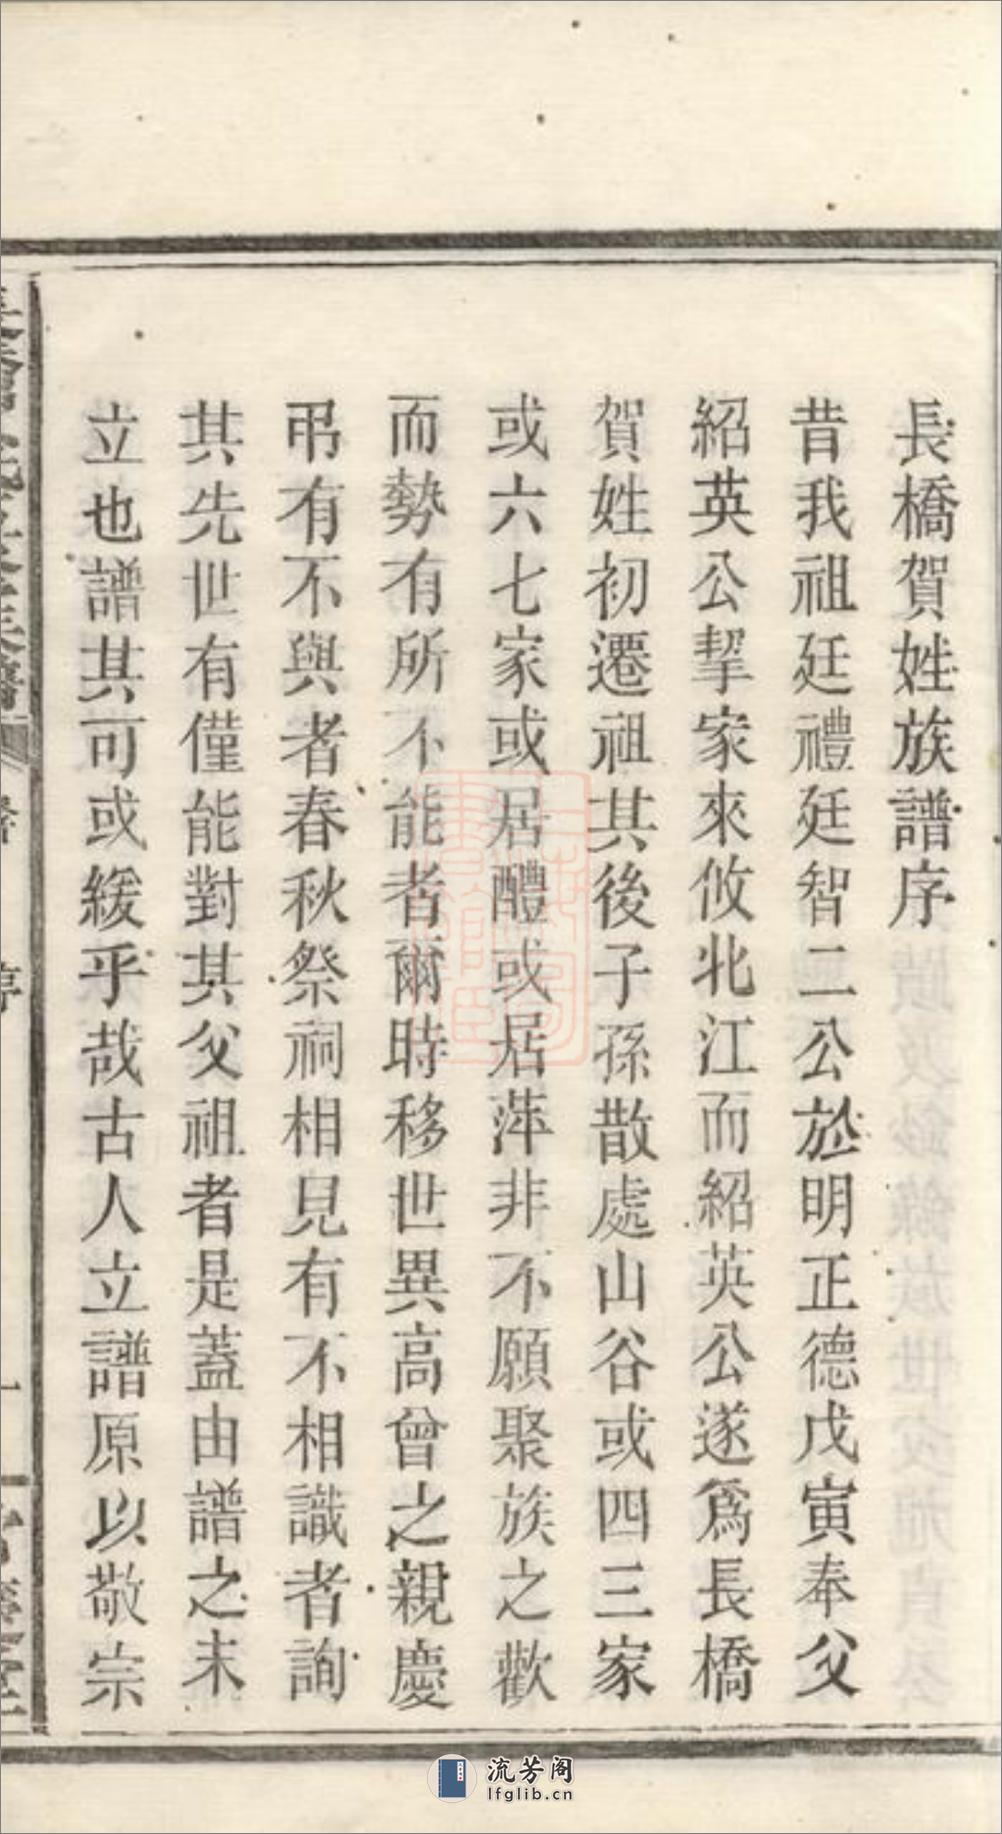 長橋賀姓族譜序
昔我祖廷禮廷智二公於明正德戊寅奉父
紹英公挈家來攸北江而紹英公遂爲長橋
賀姓初遷祖其後子孫散處山谷或四三家
或六七家或居醴或居萍非不願聚族之歡
而勢有所不能者爾時移世異高曾之親慶
弔有不與者春秋祭祠相見有不相識者詢
其先世有僅能對其父祖者是蓋由譜之未
立也譜其可或緩乎哉古人立譜原以敬宗
流芳阁
lfglib.cn